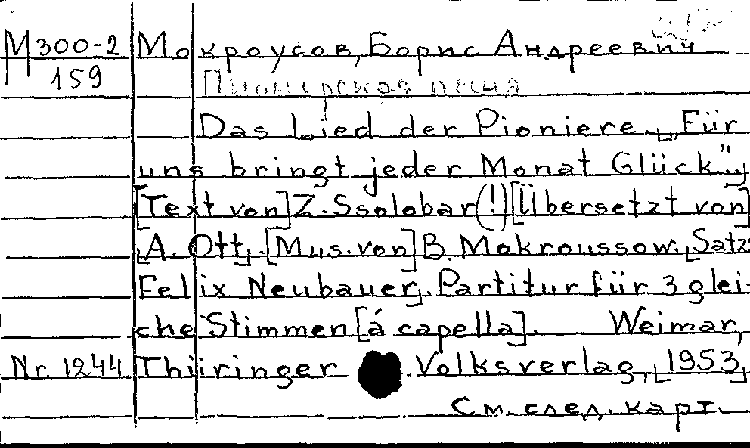 М300-2 Мокроусов, Борис Андреевич
159 Пионерская песня
Das Lied der Pioniere. „Für
uns bringt jeder Monat Glück"
[Text von] Z. Ssolobar (!) [Übersetzt von]
[A. Ott]. [Mus. von] B. Mokroussow. [Satz:
Felix Neubauer]. Partitur für 3 glei-
che Stimmen [á capella]. Weimar,
Nr. 1244 Thüringer Volksverlag, [1953]
См. след. карт.